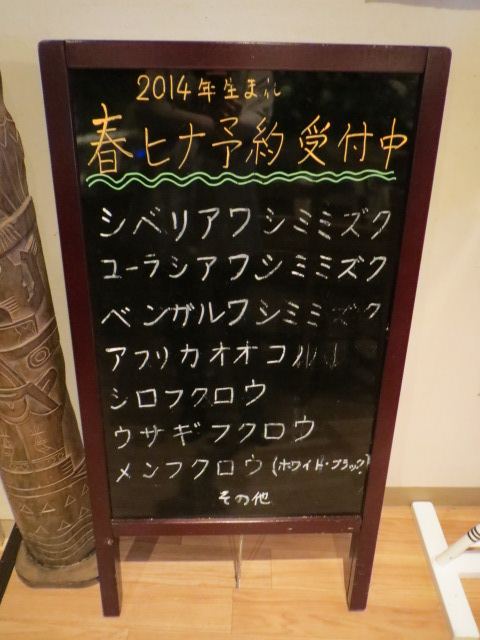 2014年生まれ
春ヒナ予約受付中
シベリアワシミミズク
ユーラシアワシミミズク
ベンガルワシミミズク
アフリカオオコノハ
シロフクロウ
ウサギフクロウ
メンフクロウ(ホワイト・ブラック)
その他